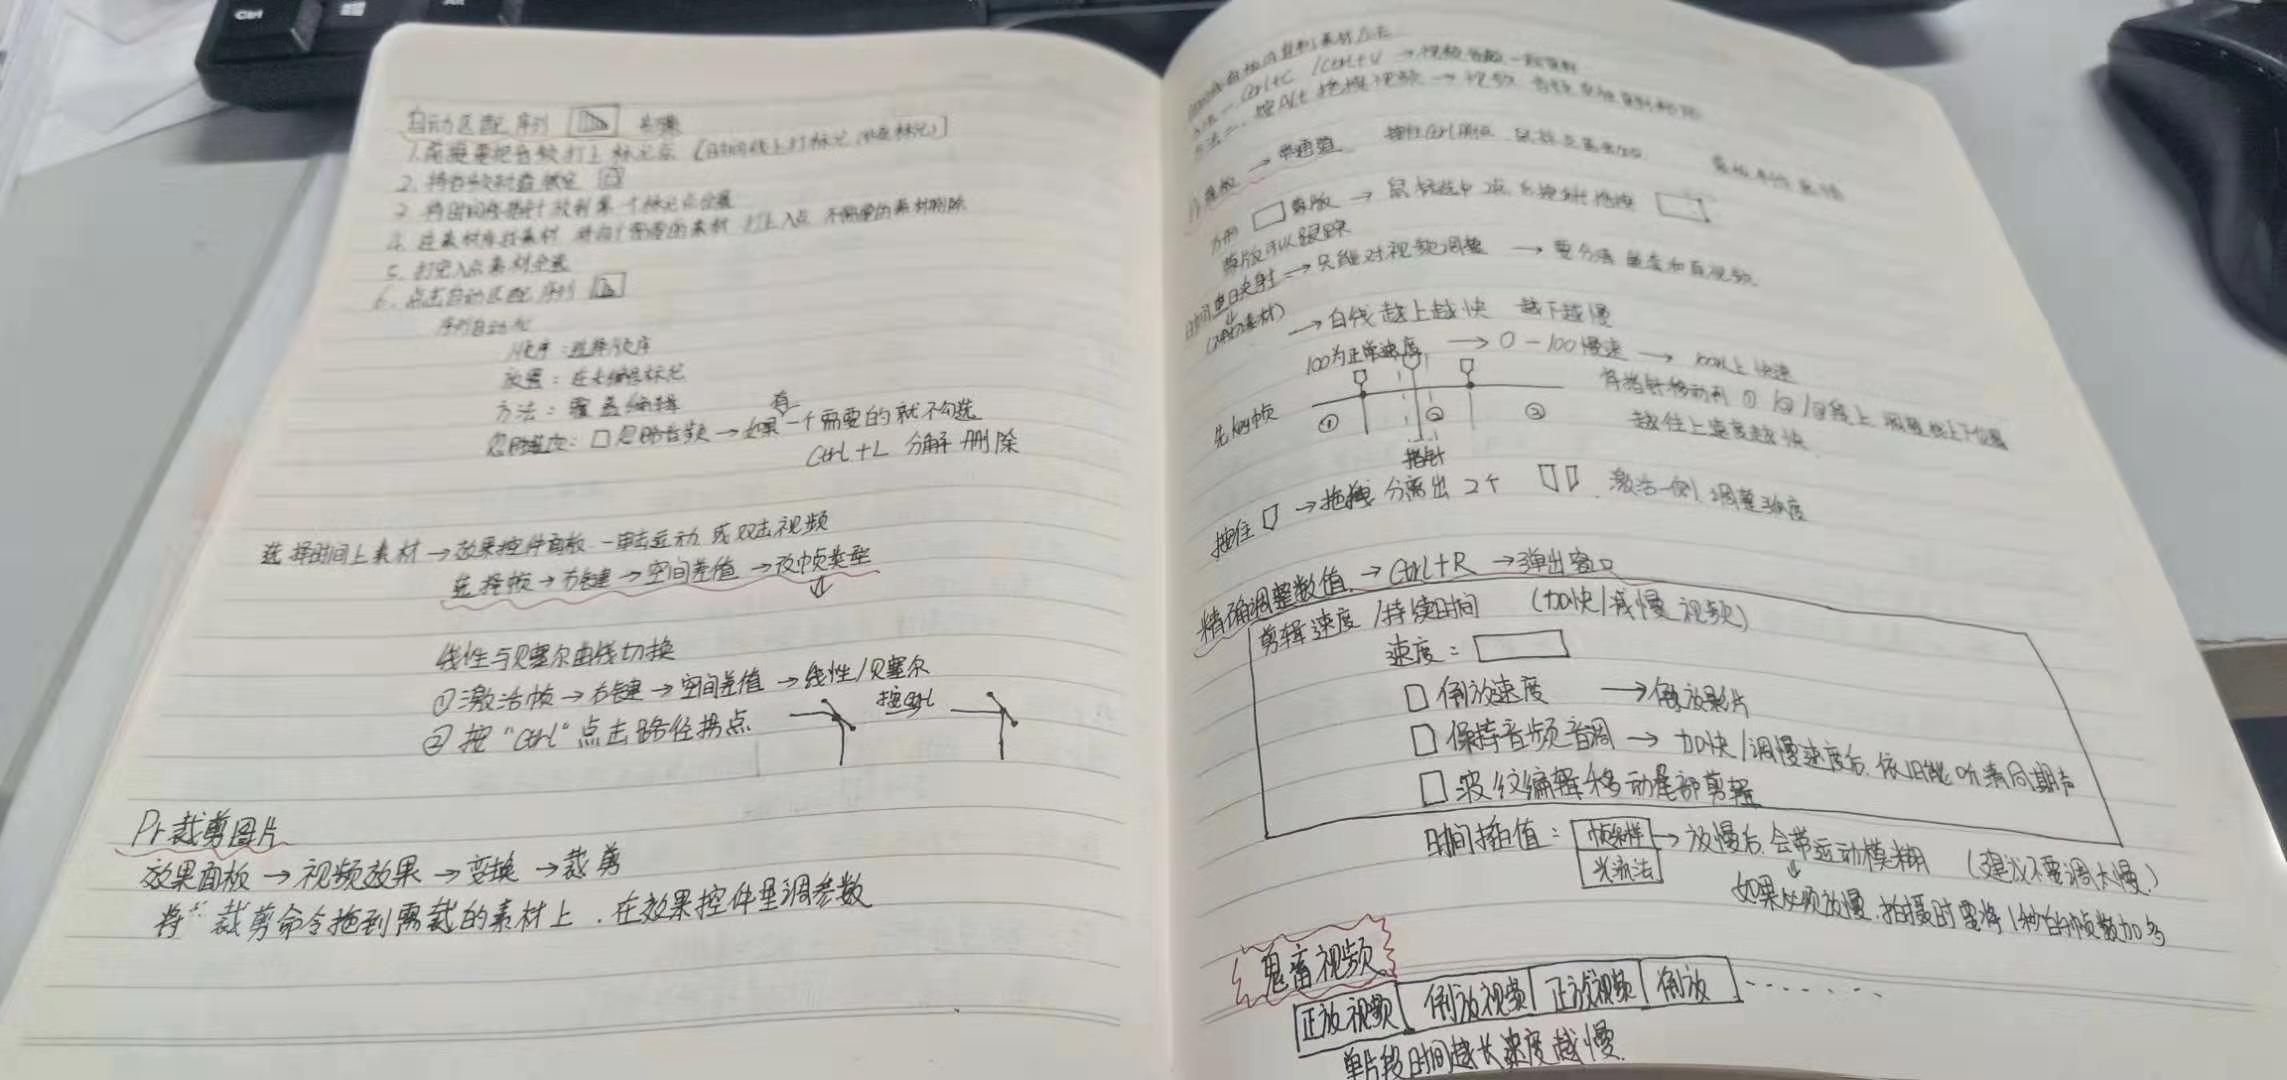 Ctrl
Alt
自动匹配序列 步骤
1.前提要把音频打上标记点 (时间线上打标记
2. 将音频轨道锁定
3. 将时间线指针放到第一个标记点位置
4. 在素材库找素材 将每个需要的素材 打上入点 不需要的素材删除
5. 打完入点素材全选
6. 点击自动匹配序列
序列自动化
顺序:选择顺序
放置:在未编号标记
方法:覆盖编辑
忽略选项:□忽略音频→如果有一个需要的就不勾选
Ctrl+L 分解 删除
选择时间上素材→效果控件面板 一单击运动 或双击视频
选择帧→右键→空间差值→改帧类型
线性与贝塞尔曲线切换
①激活帧→右键→空间差值→线性/贝塞尔
②按“Ctrl”点击路径拐点 按Ctrl
Pr裁剪图片
效果面板→视频效果→变换→裁剪
将“裁剪命令拖到需裁的素材上.在效果控件里调参数
Ctrl+C /Ctrl+V →视频音频一起复制
方法二. 按Alt 拖拽视频→视频 音频
蒙版→不透明
方形 □蒙版→鼠标选中2点
蒙版可以跟踪
时间重映射→只能对视频调整 →要分清 速度和原视频
(素材)
→白线越上越快 越下越慢
100为正常速度→0-100慢速→100以上快速
先key帧 ① ② ③ 将指针移动到①/②/③线上 调整线上下位置
越往上速度越快
指针
按住 →拖拽 分离出2个 .激活一侧.调整弧度
精确调整数值→Ctrl+R→弹出窗口
剪辑速度/持续时间 (加快/减慢 视频)
速度:
□倒放速度 →倒放影片
□保持音频音调→加快/调慢速度后.依旧能听清同期声
□波纹编辑移动尾部剪辑
时间插值:帧采样→放慢后.会带运动模糊 (建议不要调太慢.)
光流法 如果必须放慢.拍摄时要将1秒的帧数加多
鬼畜视频
正放视频 倒放视频 正放视频 倒放.......
单片段时间越长速度越慢.